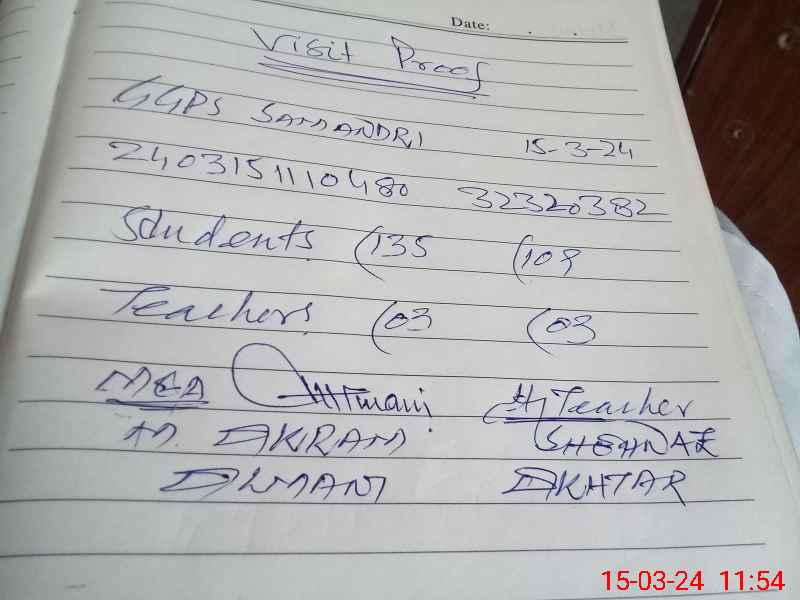 Date: . .
Visit Proof
GGPS SAMANDRI 15-3-24
2403151110480 32320382
Students (135 (109
Teachers (03 (03
MEA H/Teacher
M. AKRAM SHEHNAZ
ALMANI AKHTAR
15-03-24 11:54